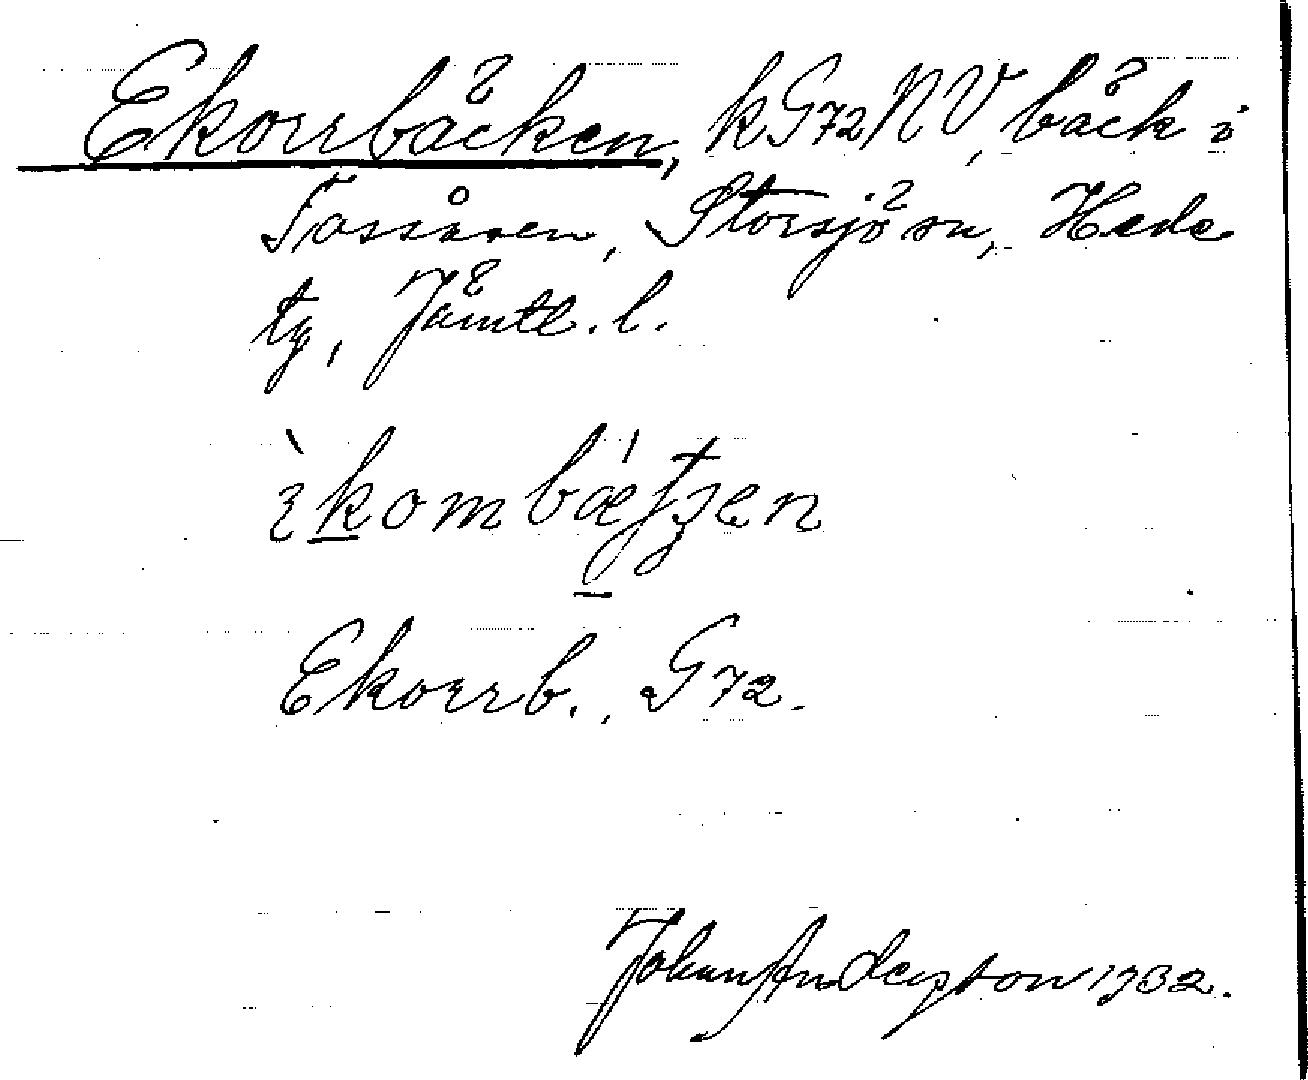 Ekorrbäcken, k G72NV, bäck i
Tossåsen, Storsjö sn, Hede
tg, Jämtl. l.
Ekorrb., G72.
Johan Anderzon 1932.